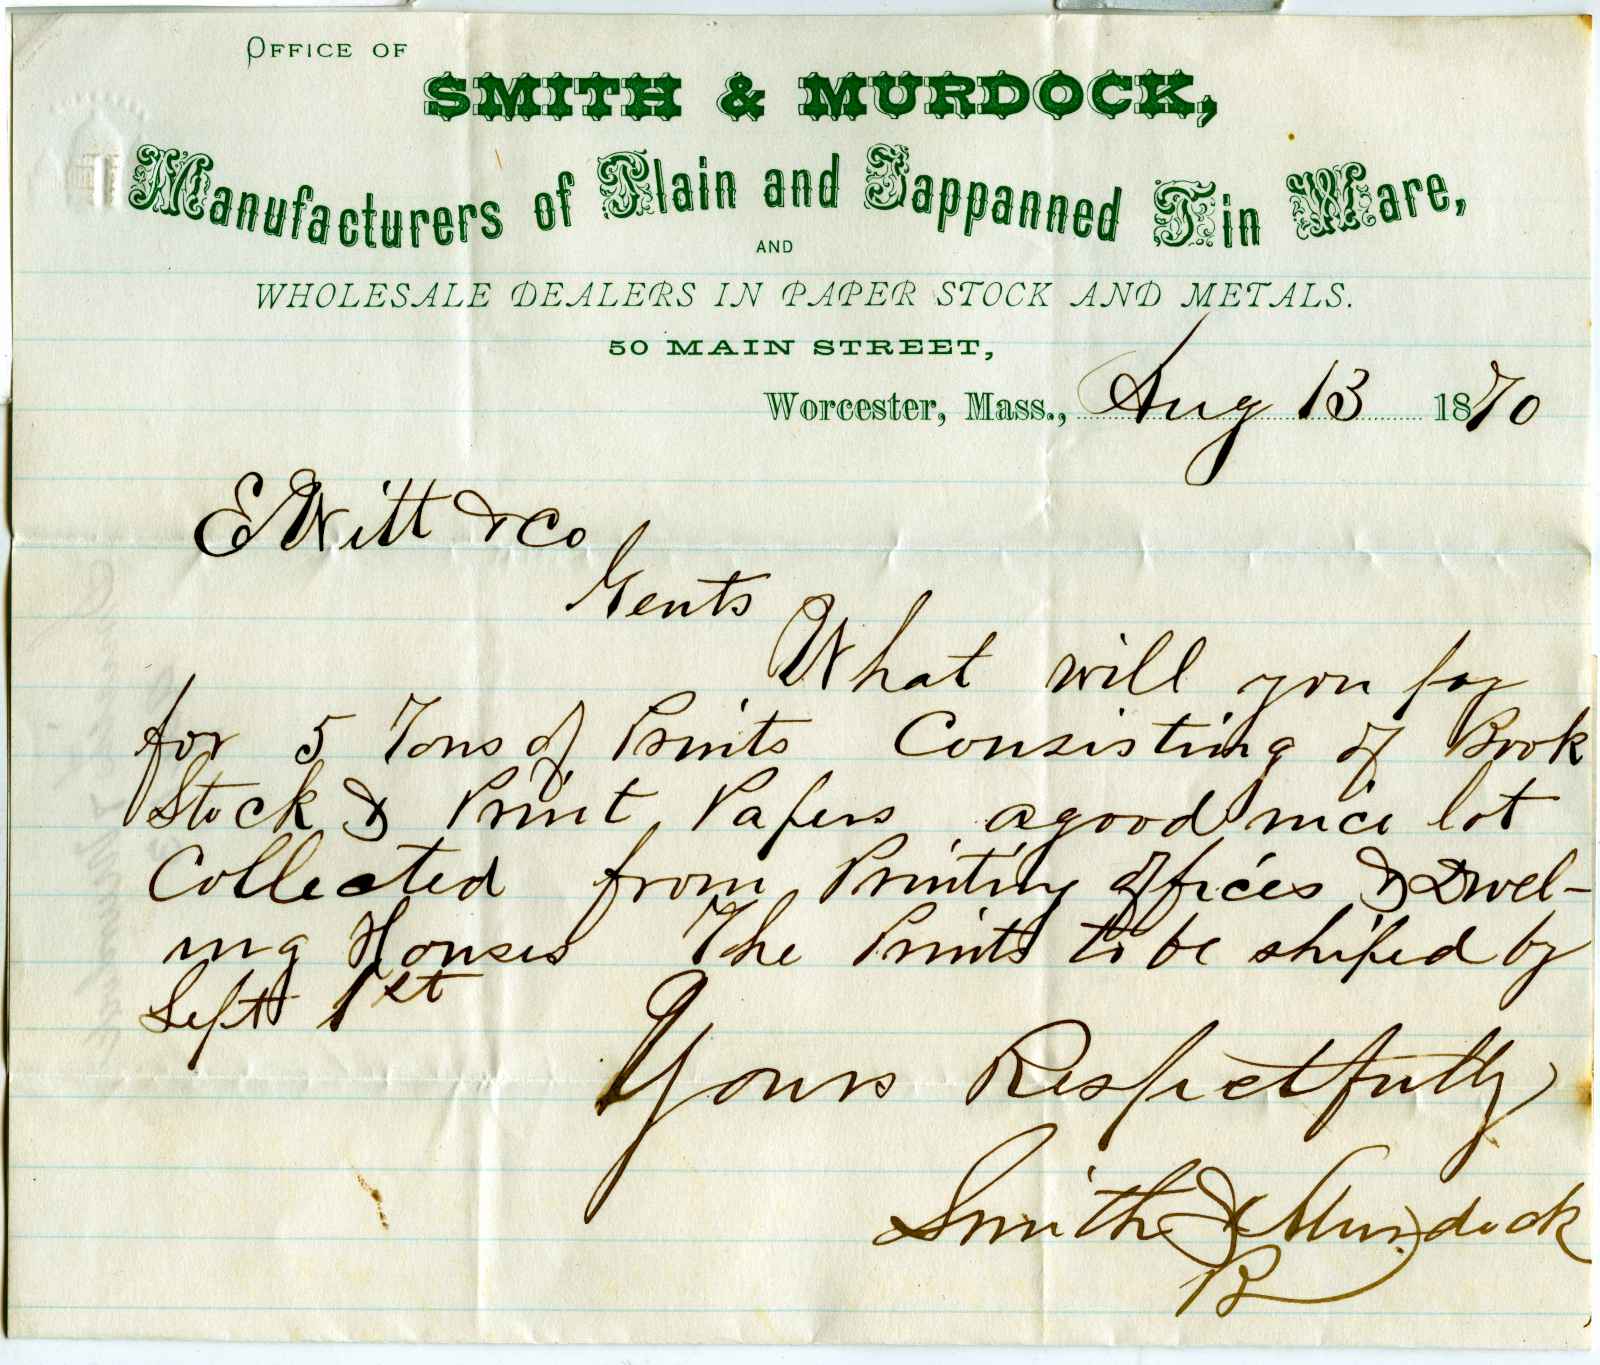 OFFICE OF
SMITH & MURDOCK,
Manufacturers of Plain and Japanned Tin Ware,
AND
WHOLESALE DEALERS IN PAPER STOCK AND METALS.
50 MAIN STREET,
Worcester, Mass., Aug 13 1870
E Witt & Co
Gents
What will you pay
for 5 Tons of Prints Consisting of Book
Stock & Print Papers a good nice lot
Collected from Printing offices & Dwel-
ing Houses The Prints to be shiped by
Sept 1st
Yours Respectfully
Smith & Murdock
B